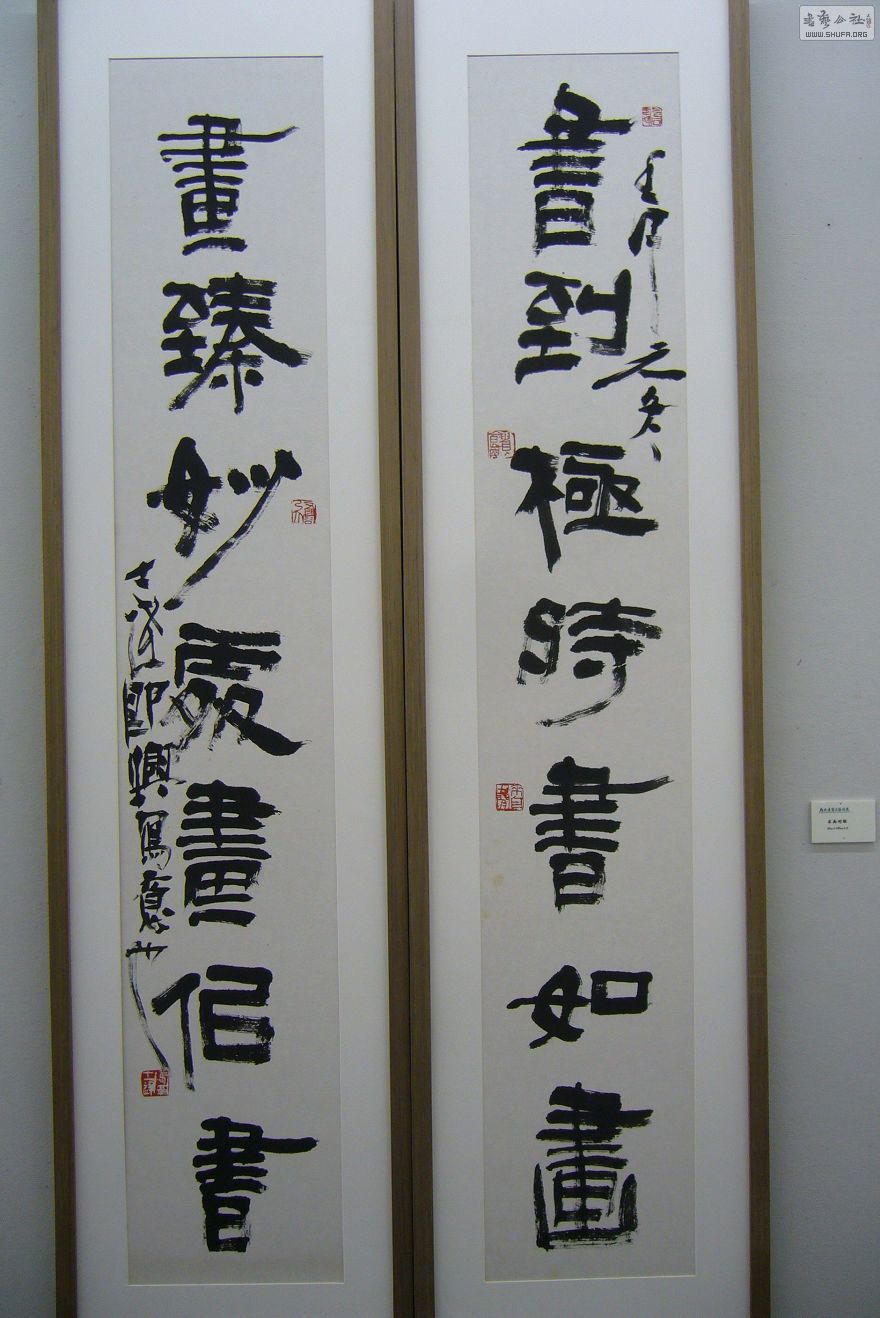 書到極時書如畫
壬辰元冬
畫臻妙處畫佀書
即興寫意也
書藝公社
WWW.SHUFA.ORG